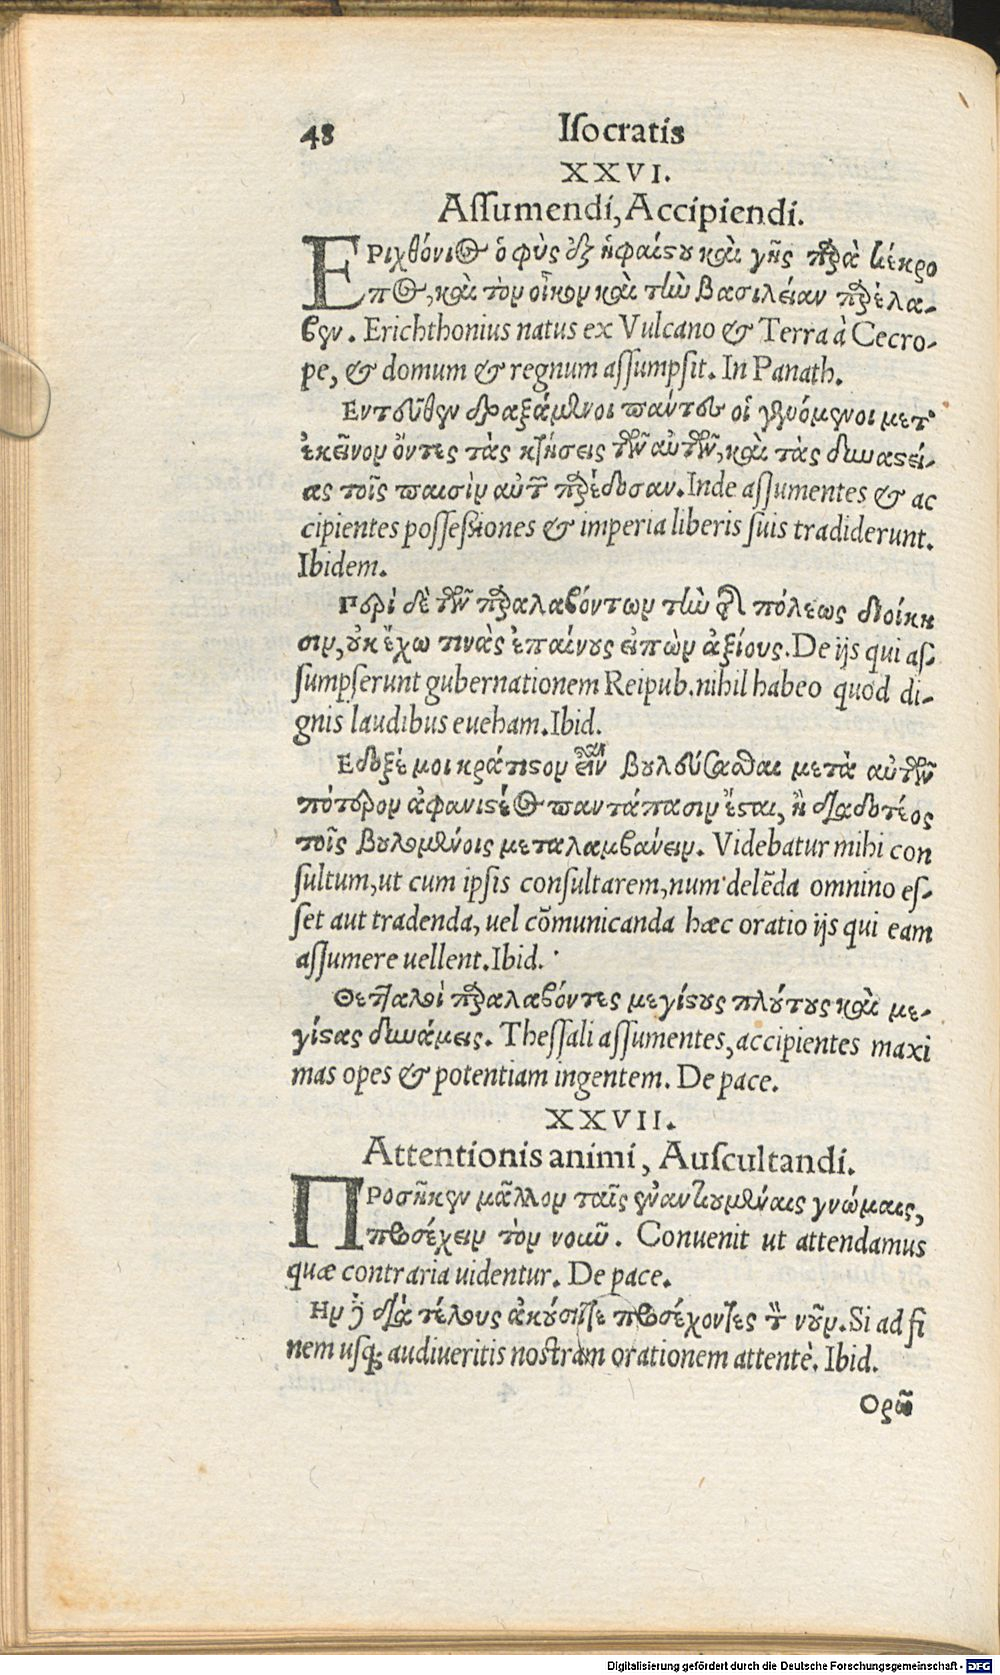 48 Iſocratis
XXVI.
Aſſumendi, Accipiendi.
ΕΡιχθόνιος ὁ φὺς ἐξ ἡφαίςου καὶ γῆς παρὰ κέκρο
πος, καὶ τὸν οἶκον καὶ τὴν βασιλείαν παρέλα-
βεν. Erichthonius natus ex Vulcano & Terra à Cecro-
pe, & domum & regnum aſſumpſit. In Panath.
Εντεῦθεν δεξάμενοι πάντες οἱ γενόμενοι μετ'
ἐκεῖνον ὄντες τὰς κτήσεις τὰς αὐτῶν, καὶ τὰς δυναςεί-
ας τοῖς παισὶν αὐτῶν παρέδοσαν. Inde aſſumentes & ac
cipientes poſſeſsiones & imperia liberis ſuis tradiderunt.
Ibidem.
Περὶ δὲ τῶν παραλαβόντων τὴν τῆς πόλεως διοίκη
σιν, οὐκ ἔχω τινὰς ἐπαίνους εἰπὼν ἀξίους. De ijs qui aſ-
ſumpſerunt gubernationem Reipub. nihil habeo quod di-
gnis laudibus eueham. Ibid.
Εδοξέ μοι κράτιςον εἶναι βουλεύσασθαι μετὰ αὐτῶν
πότερον ἀφανιςέος παντάπασιν ἔςαι, ἢ διαδοτέος
τοῖς βουλομένοις μεταλαμβάνειν. Videbatur mihi con
ſultum, ut cum ipſis conſultarem, num delēda omnino eſ-
ſet aut tradenda, uel cōmunicanda hæc oratio ijs qui eam
aſſumere uellent. Ibid.
Θετταλοὶ παραλαβόντες μεγίςους πλούτους καὶ με-
γίςας δυνάμεις. Theſſali aſſumentes, accipientes maxi
mas opes & potentiam ingentem. De pace.
XXVII.
Attentionis animi, Auſcultandi.
ΠΡοσῆκεν μᾶλλον ταῖς ἐναντιουμέναις γνώμαις,
προσέχειν τὸν νοῦν. Conuenit ut attendamus
quæ contraria uidentur. De pace.
Ην διὰ τέλους ἀκούσητε προσέχοντες τὸν νοῦν. Si ad fi
nem uſq; audiueritis noſtram orationem attentè. Ibid.
Ορῶ
Digitalisierung gefördert durch die Deutsche Forschungsgemeinschaft - DFG